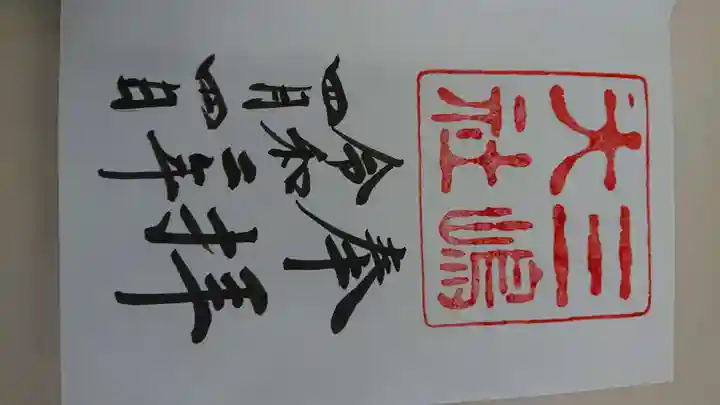 三嶋
大社
奉拝
令和二年
四月四日